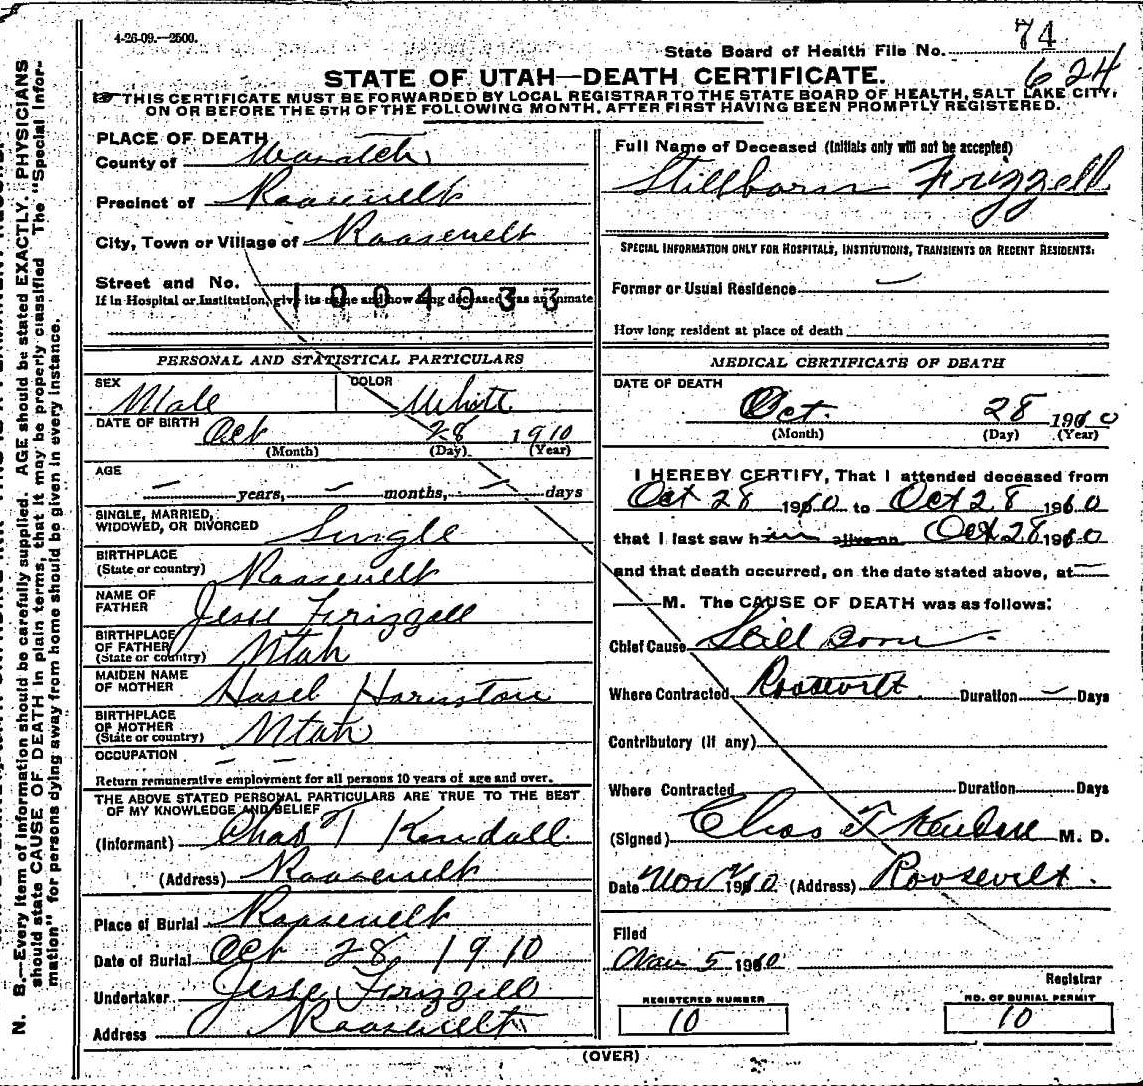 4-26-09.—2500.
State Board of Health File No. 74
624
STATE OF UTAH—DEATH CERTIFICATE.
☞ THIS CERTIFICATE MUST BE FORWARDED BY LOCAL REGISTRAR TO THE STATE BOARD OF HEALTH, SALT LAKE CITY,
ON OR BEFORE THE 5TH OF THE FOLLOWING MONTH, AFTER FIRST HAVING BEEN PROMPTLY REGISTERED.
PLACE OF DEATH
County of Wasatch
Precinct of Roosevelt
City, Town or Village of Roosevelt
Street and No.
If in Hospital or Institution, give its name and how long deceased was an inmate
1004033
PERSONAL AND STATISTICAL PARTICULARS
SEX Male COLOR White
DATE OF BIRTH Oct 28 1910
(Month) (Day) (Year)
AGE
— years, — months, — days
SINGLE, MARRIED,
WIDOWED, OR DIVORCED Single
BIRTHPLACE
(State or country) Roosevelt
NAME OF
FATHER Jesse Frizzell
BIRTHPLACE
OF FATHER
(State or country) Utah
MAIDEN NAME
OF MOTHER Hasel Harmston
BIRTHPLACE
OF MOTHER
(State or country) Utah
OCCUPATION — —
Return remunerative employment for all persons 10 years of age and over.
THE ABOVE STATED PERSONAL PARTICULARS ARE TRUE TO THE BEST
OF MY KNOWLEDGE AND BELIEF
(Informant) Chas T Kendall
(Address) Roosevelt
Place of Burial Roosevelt
Date of Burial Oct 28, 1910
Undertaker Jesse Frizzell
Address Roosevelt
Full Name of Deceased (Initials only will not be accepted)
Stillborn Frizzell
SPECIAL INFORMATION ONLY FOR HOSPITALS, INSTITUTIONS, TRANSIENTS OR RECENT RESIDENTS:
Former or Usual Residence
How long resident at place of death
MEDICAL CERTIFICATE OF DEATH
DATE OF DEATH
Oct. 28 1910
(Month) (Day) (Year)
I HEREBY CERTIFY, That I attended deceased from
Oct 28 1910 to Oct 28 1910
that I last saw him alive on Oct 28 1910
and that death occurred, on the date stated above, at —
— M. The CAUSE OF DEATH was as follows:
Chief Cause Still Born
Where Contracted Roosevelt. Duration — Days
Contributory (if any)
Where Contracted Duration Days
(Signed) Chas T Kendall M. D.
Date Nov 1910 (Address) Roosevelt.
Filed
Nov 5 1910
Registrar
REGISTERED NUMBER
10
NO. OF BURIAL PERMIT
10
(OVER)
N. B.—Every item of information should be carefully supplied. AGE should be stated EXACTLY. PHYSICIANS
should state CAUSE OF DEATH in plain terms, that it may be properly classified. The "Special Infor-
mation" for persons dying away from home should be given in every instance.